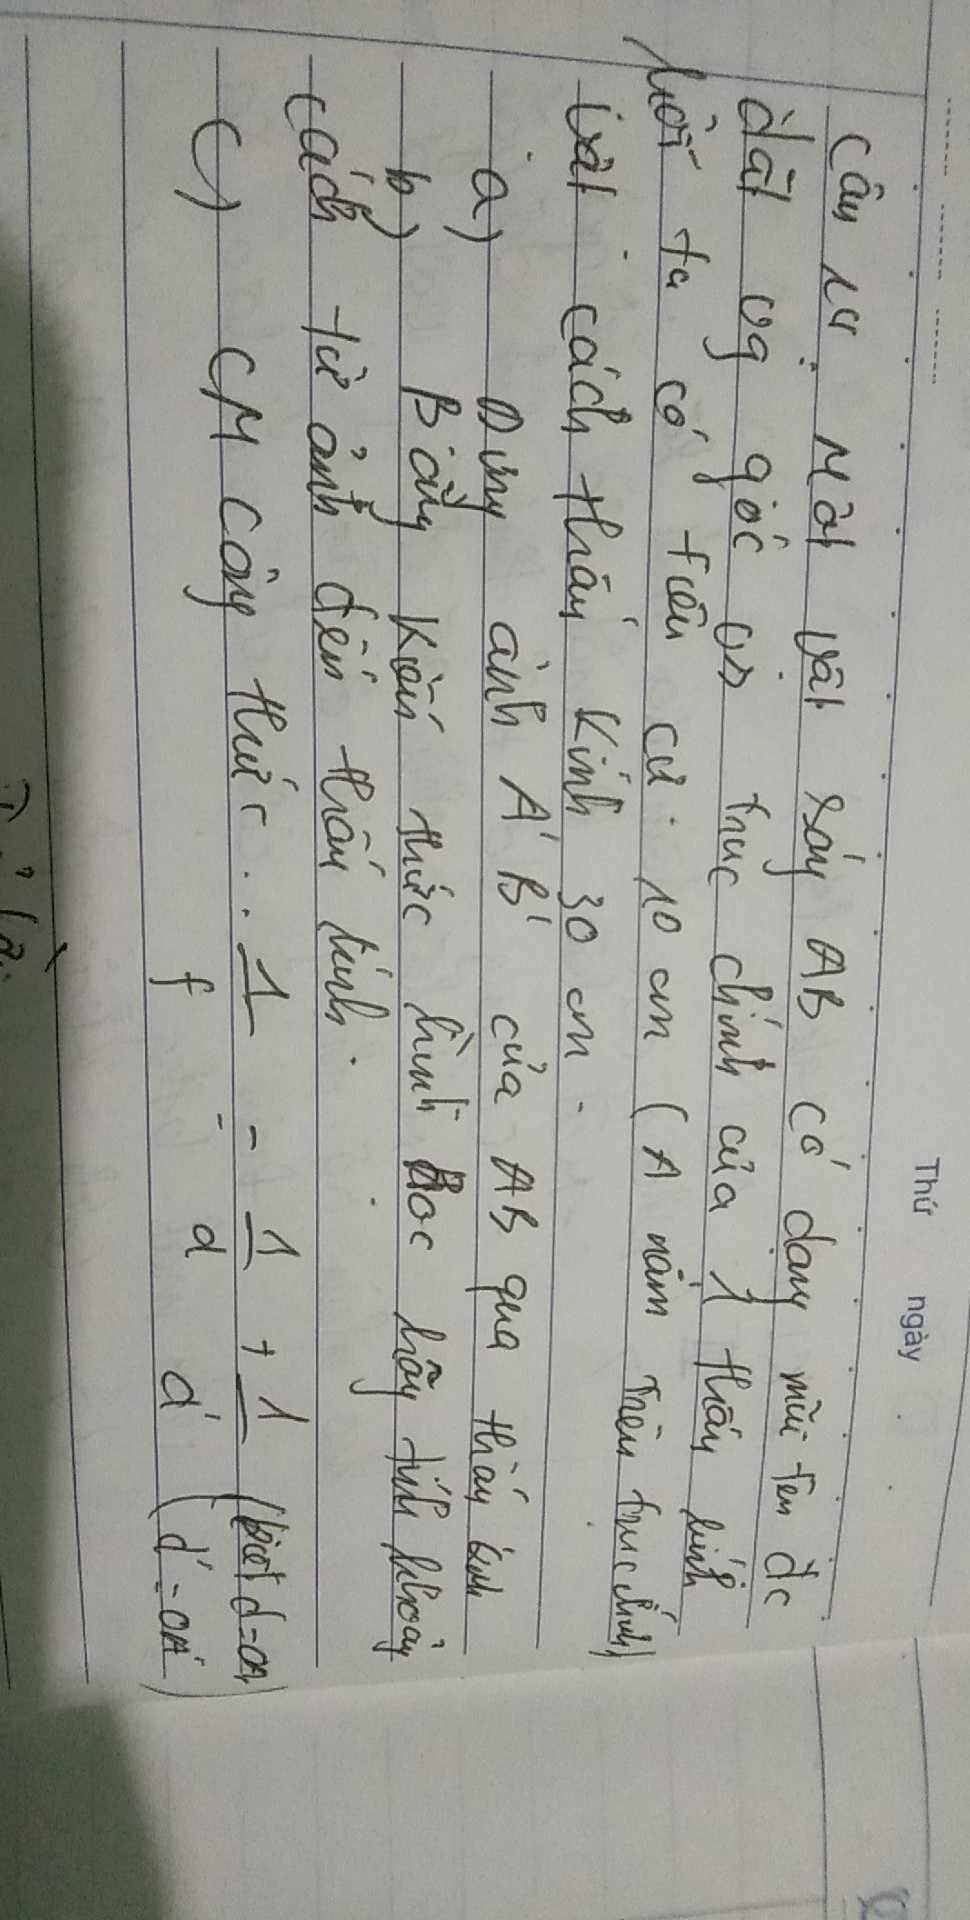 Thứ ngày
Câu 14 Một vật sáng AB có dạng mũi tên đc
đặt vg góc vs trục chính của 1 thấu kính
hội tụ có tiêu cự 10 cm (A nằm trên trục chính)
vật cách thấu kính 30 cm.
a) Dựng ảnh A'B' của AB qua thấu kính
b) Bằng kiến thức hình học hãy tính khoảng
cách từ ảnh đến thấu kính.
c) CM công thức: 1/f = 1/d + 1/d' (biết d=OA
(d'=OA')